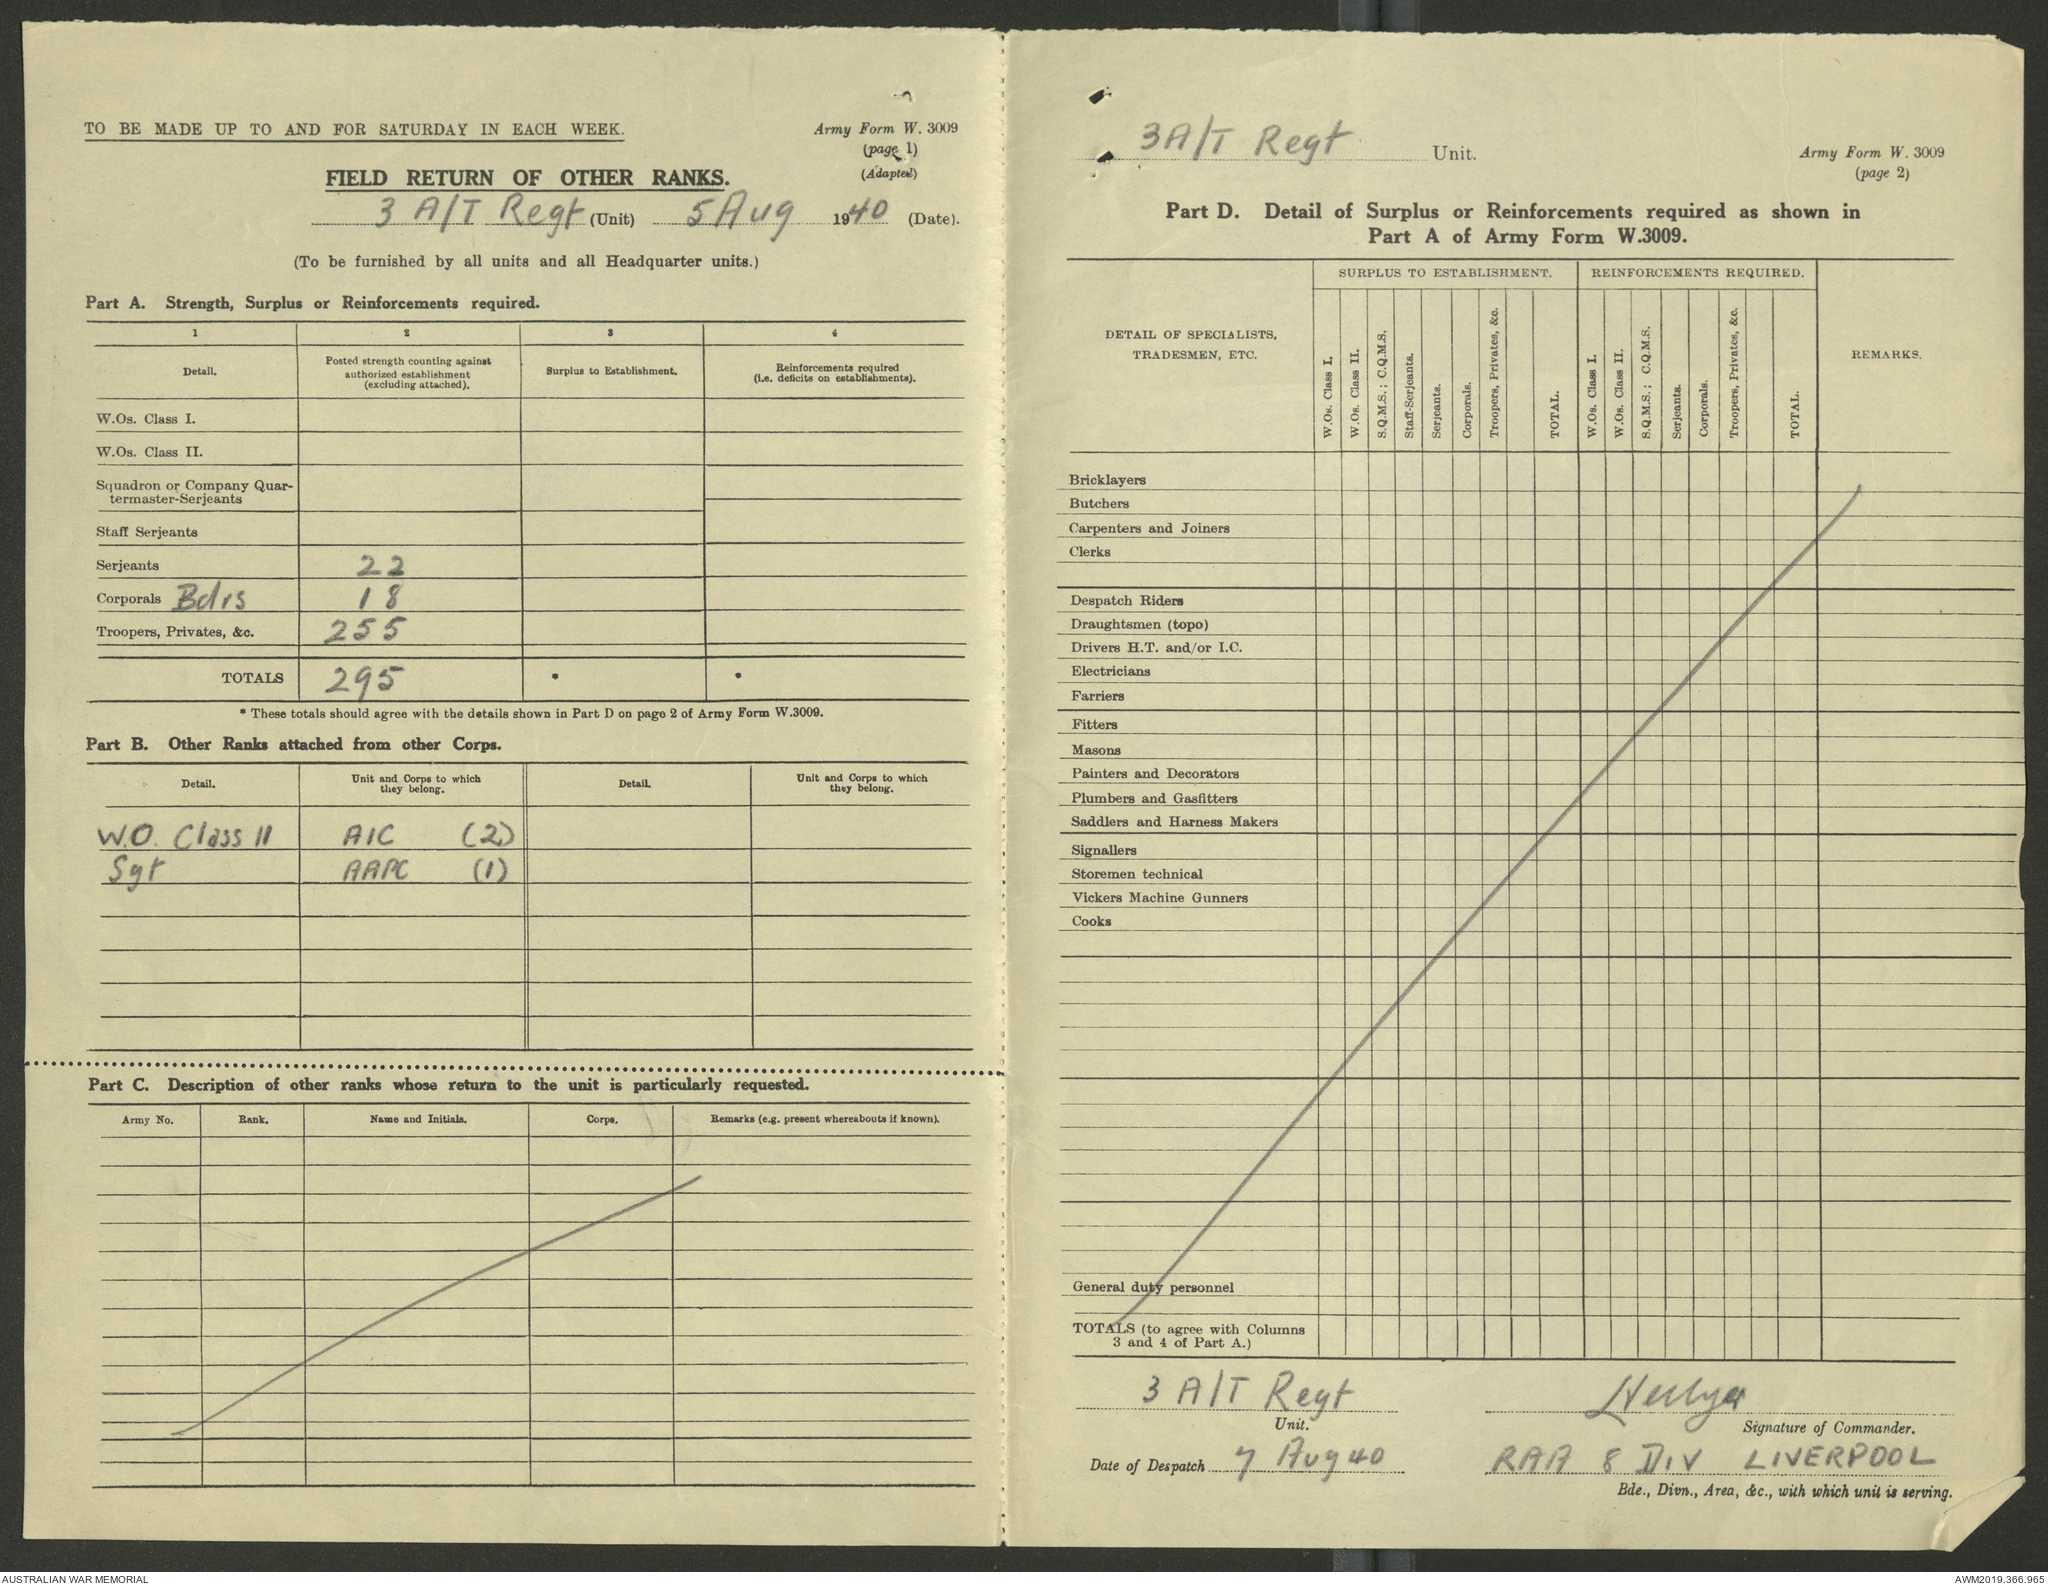 TO BE MADE UP TO AND FOR SATURDAY IN EACH WEEK.
Army Form W. 3009
(page 1)
(Adapted)
FIELD RETURN OF OTHER RANKS.
3 A/T Regt (Unit) 5 Aug 1940 (Date).
(To be furnished by all units and all Headquarter units.)
Part A. Strength, Surplus or Reinforcements required.
1 2 3 4
Detail.
Posted strength counting against authorized establishment (excluding attached).
Surplus to Establishment.
Reinforcements required (i.e. deficits on establishments).
W.Os. Class I.
W.Os. Class II.
Squadron or Company Quar-
termaster-Serjeants
Staff Serjeants
Serjeants 22
Corporals Bdrs 18
Troopers, Privates, &c. 255
TOTALS 295 * *
* These totals should agree with the details shown in Part D on page 2 of Army Form W.3009.
Part B. Other Ranks attached from other Corps.
Detail.
Unit and Corps to which they belong.
Detail.
Unit and Corps to which they belong.
W.O. Class II AIC (2)
Sgt AAPC (1)
Part C. Description of other ranks whose return to the unit is particularly requested.
Army No. Rank. Name and Initials. Corps. Remarks (e.g. present whereabouts if known).
3 A/T Regt Unit.
Army Form W. 3009
(page 2)
Part D. Detail of Surplus or Reinforcements required as shown in
Part A of Army Form W.3009.
DETAIL OF SPECIALISTS,
TRADESMEN, ETC.
SURPLUS TO ESTABLISHMENT.
W.Os. Class I.
W.Os. Class II.
S.Q.M.S.; C.Q.M.S.
Staff-Serjeants.
Serjeants.
Corporals.
Troopers, Privates, &c.
TOTAL.
REINFORCEMENTS REQUIRED.
W.Os. Class I.
W.Os. Class II.
S.Q.M.S.; C.Q.M.S.
Serjeants.
Corporals.
Troopers, Privates, &c.
TOTAL.
REMARKS.
Bricklayers
Butchers
Carpenters and Joiners
Clerks
Despatch Riders
Draughtsmen (topo)
Drivers H.T. and/or I.C.
Electricians
Farriers
Fitters
Masons
Painters and Decorators
Plumbers and Gasfitters
Saddlers and Harness Makers
Signallers
Storemen technical
Vickers Machine Gunners
Cooks
General duty personnel
TOTALS (to agree with Columns
3 and 4 of Part A.)
3 A/T Regt
Unit.
Signature of Commander.
Date of Despatch 7 Aug 40
RAA 8 DIV LIVERPOOL
Bde., Divn., Area, &c., with which unit is serving.
AUSTRALIAN WAR MEMORIAL
AWM2019.366.965